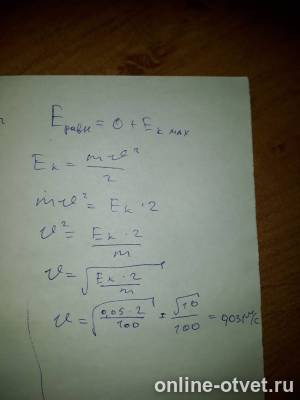 E равн = 0 + E к мах
E к = mv²/2
mv² = E к · 2
v² = E к · 2 / m
v = √(E к · 2 / m)
v = √(0,05 · 2 / 100) = √10 / 100 = 0,031 м/с
online-otvet.ru